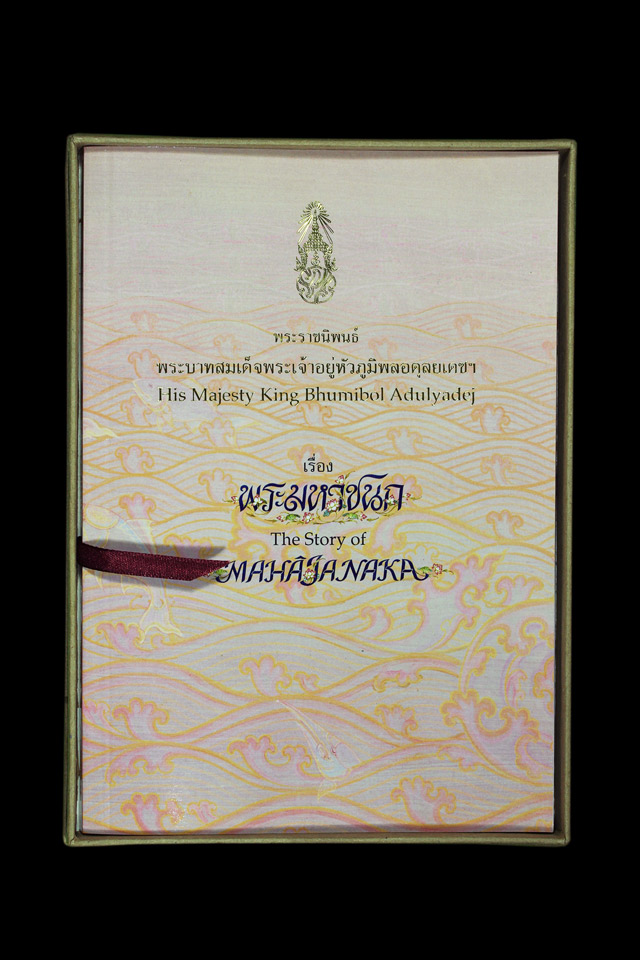 พระราชนิพนธ์
พระบาทสมเด็จพระเจ้าอยู่หัวภูมิพลอดุลยเดชฯ
His Majesty King Bhumibol Adulyadej
เรื่อง
พระมหาชนก
The Story of
MAHĀJANAKA